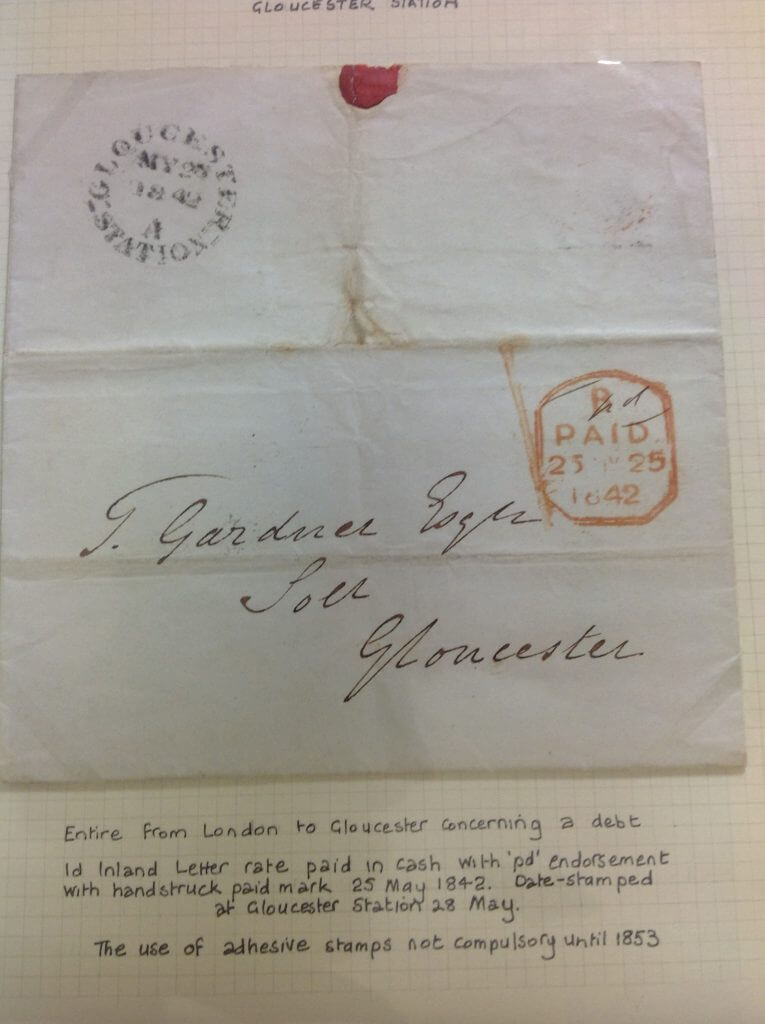 GLOUCESTER STATION
GLOUCESTER-STATION
MY 28
1842
A
P
pd
PAID
25 MY 25
1842
T. Gardner Esqr
Solr
Gloucester
Entire from London to Gloucester concerning a debt
1d Inland Letter rate paid in cash with 'pd' endorsement
with handstruck paid mark 25 May 1842. Date-stamped
at Gloucester Station 28 May.
The use of adhesive stamps not compulsory until 1853